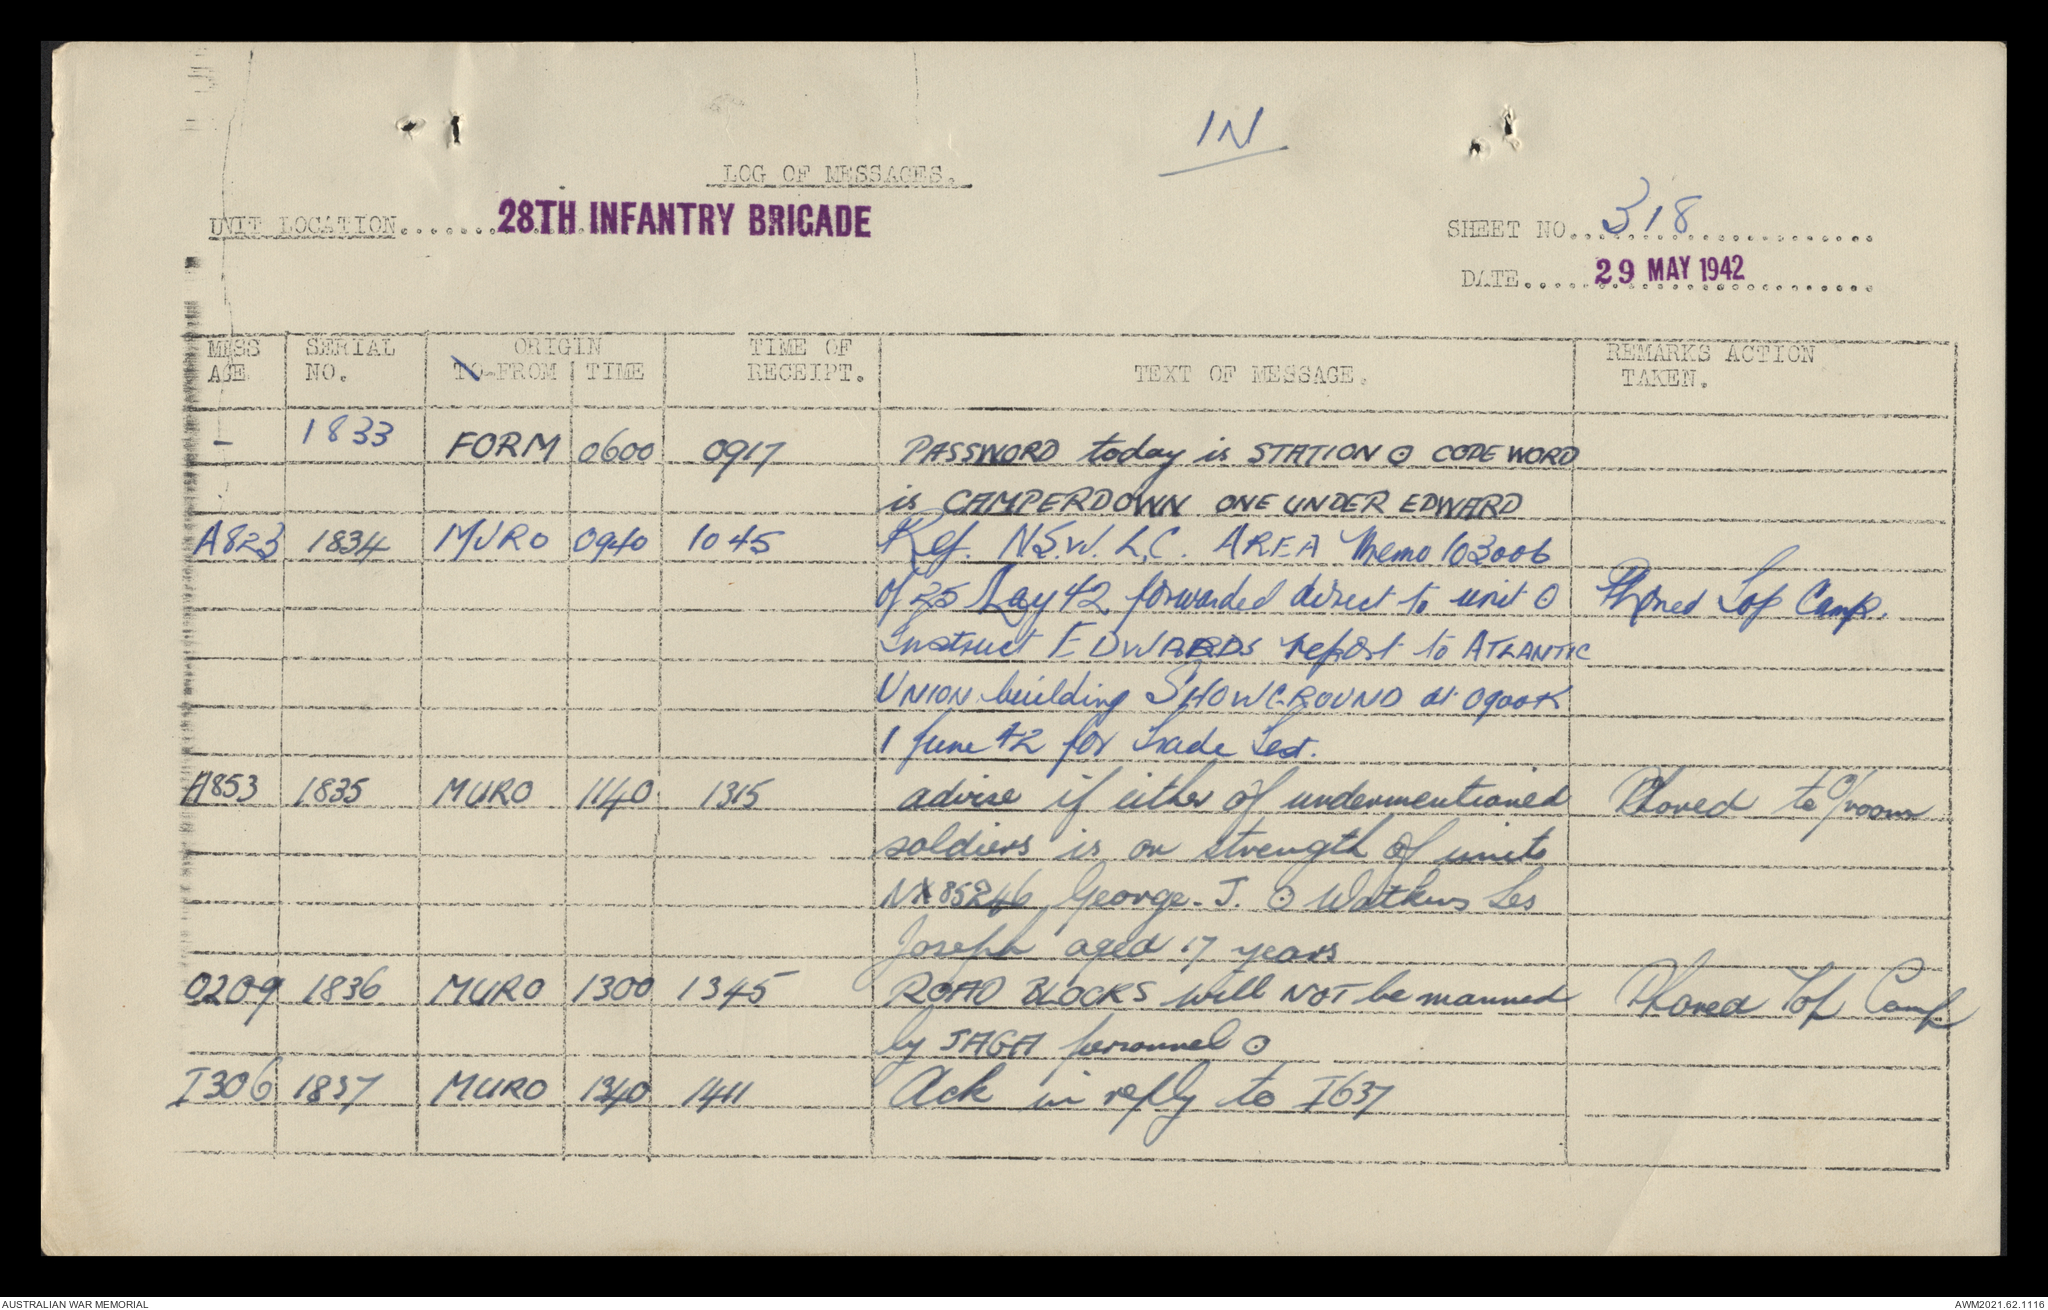 IN
LOG OF MESSAGES.
UNIT LOCATION....... 28TH INFANTRY BRIGADE
SHEET NO. 318
DATE..... 29 MAY 1942
MESS AGE SERIAL NO. ORIGIN TO-FROM TIME TIME OF RECEIPT. TEXT OF MESSAGE. REMARKS ACTION TAKEN.
- 1833 FORM 0600 0917 PASSWORD today is STATION ⊙ CODE WORD
is CAMPERDOWN ONE UNDER EDWARD
A823 1834 MURO 0940 1045 Ref. N.S.W. L.C. AREA Memo 103006
of 25 May 42 forwarded direct to unit ⊙ Phoned Top Camp.
Instruct EDWARDS report to ATLANTIC
UNION building SHOWGROUND at 0900K
1 June 42 for Trade Test.
A853 1835 MURO 1140 1315 advise if either of undermentioned Phoned to O/room
soldiers is on strength of units
NX85246 George. J. ⊙ Watkins Les
Joseph aged 17 years
O209 1836 MURO 1300 1345 ROAD BLOCKS will NOT be manned Phoned Top Camp
by JAGA personnel ⊙
I306 1837 MURO 1340 1411 Ack in reply to I637
AUSTRALIAN WAR MEMORIAL
AWM2021.62.1116